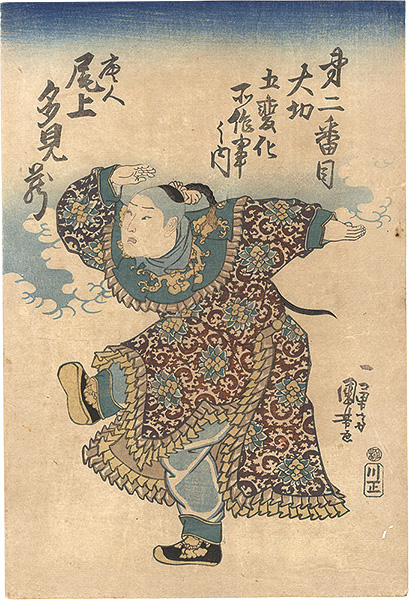 第二番目
大切
五変化
所作事
之内
唐人
尾上
多見蔵
一勇斎
国芳画
川正